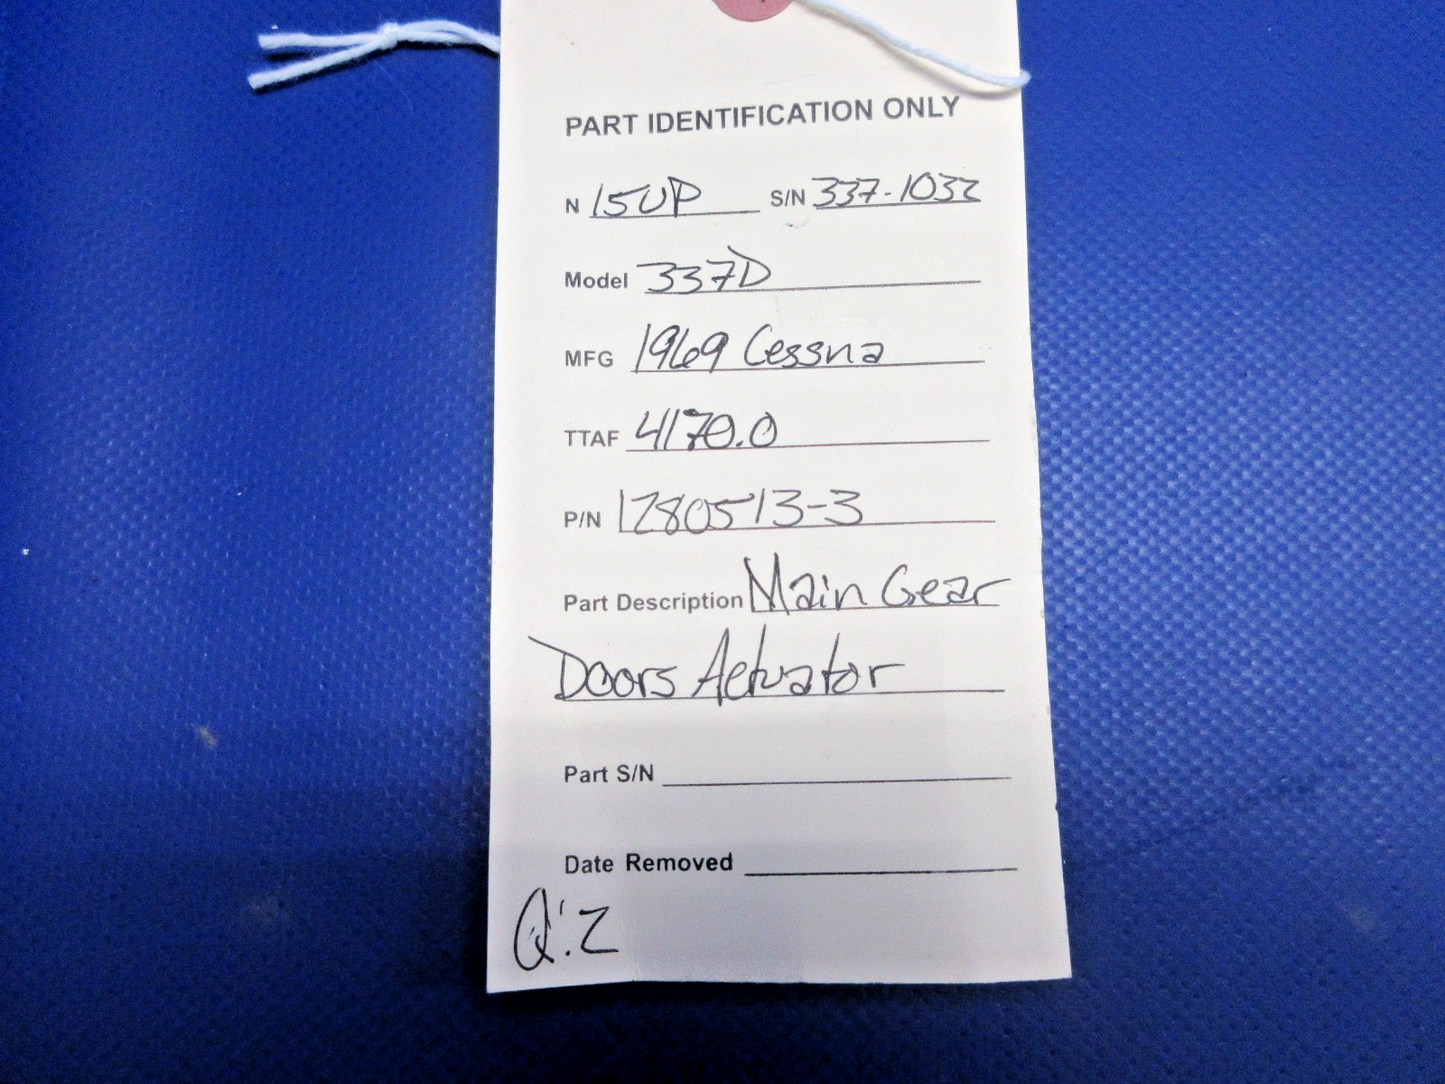 PART IDENTIFICATION ONLY
N 15UP S/N 337-1032
Model 337D
MFG 1969 Cessna
TTAF 4170.0
P/N 1280513-3
Part Description Main Gear
Doors Actuator
Part S/N
Date Removed
Q:2